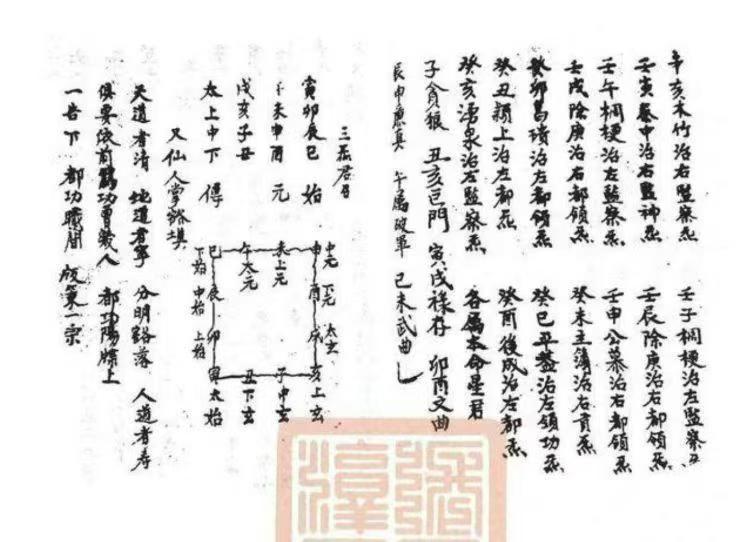 辛亥本竹治右監察炁 壬子棡梗治左監察炁
壬寅秦中治右監神炁 壬辰除庚治右都領炁
壬午棡梗治左監察炁 壬申公慕治右都領炁
壬戌除庚治右都領炁 癸未主簿治右貢炁
癸卯葛璝治左都領炁 癸巳平蓋治左領功炁
癸丑潁上治左都炁 癸酉後成治左都炁
癸亥湧泉治左監察炁 各属本命星君
子貪狼 丑亥巨門 寅戌祿存 卯酉文曲
辰申廉真 午属破軍 巳未武曲
三炁君召
寅卯辰巳 始
午未申酉 元
戌亥子丑
太上中下 傳
又仙人掌訣填
中元 下元 太玄
申 酉 戌 亥上玄
未上元
子中玄
午太元
丑下玄
巳 辰 卯 寅太始
下始 中始 上始
天道者清 地道者寧 分明谿落 人道者寿
俱要依前 功曹幾人 都功陽牒上
一吿下 都功職間 版第一宗